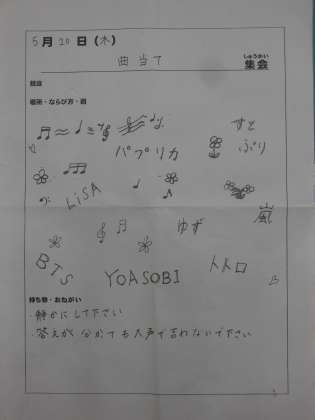 5月20日(木)
曲当て
しゅうかい
集会
場所・ならび方・図
パプリカ
すと
ぷり
LiSA
嵐
ゆず
BTS
YOASOBI
トトロ
持ち物・おねがい
・静かにして下さい
・答えが分かっても大声で言わないで下さい